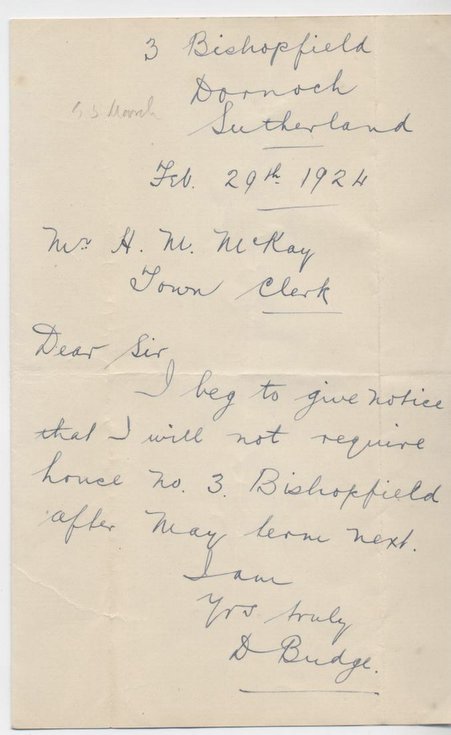 3 Bishopfield
Dornoch
Sutherland
Feb. 29th 1924
Mr H. M. McKay
Town Clerk
Dear Sir
I beg to give notice
that I will not require
house no. 3. Bishopfield
after May term next.
I am
Yrs truly
D Budge.